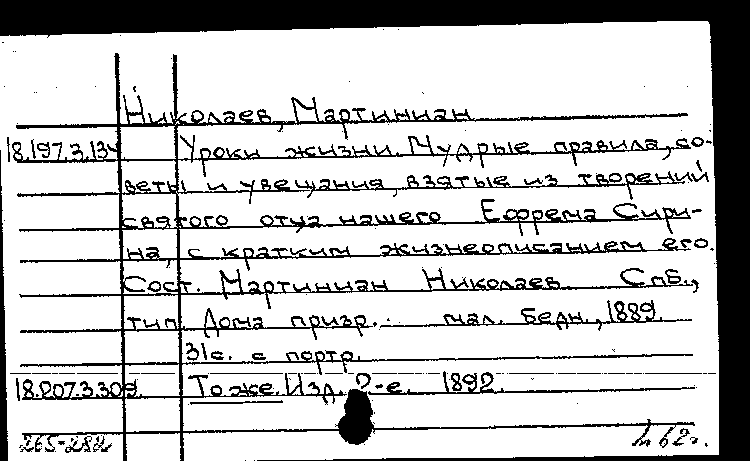 Николаев, Мартиниан
18.197.3.134 Уроки жизни. Мудрые правила, со-
веты и увещания, взятые из творений
святого отца нашего Ефрема Сири-
на, с кратким жизнеописанием его.
Сост. Мартиниан Николаев. Спб.,
тип. Дома призр. мал. бедн., 1889.
31с. с портр.
18.207.3.309. То же. Изд. 2-е. 1892.
265-282 62г.